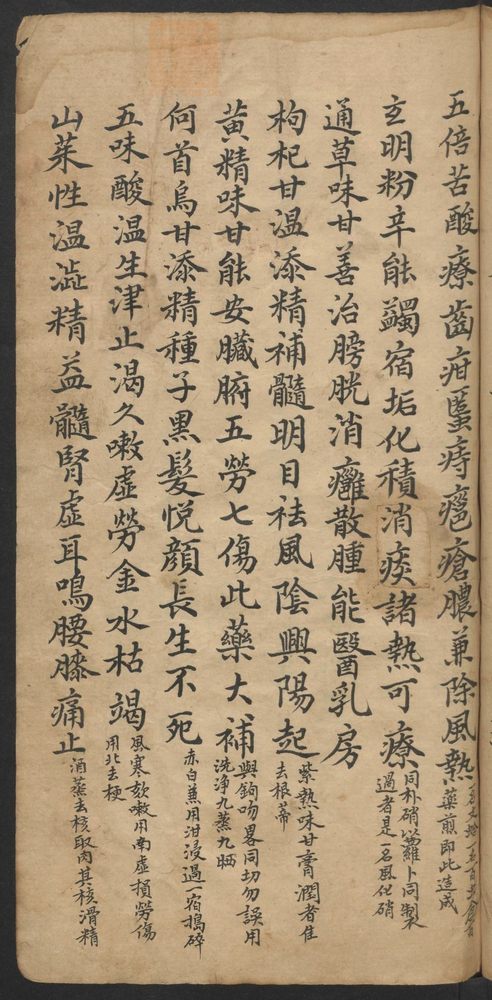 五倍苦酸療齒疳䘌痔瘡瘡膿兼除風熱
藥煎即此造成
玄明粉辛能蠲宿垢化積消痰諸熱可療
同朴硝以蘿卜同製
過者是一名風化硝
通草味甘善治膀胱消癰散腫能醫乳房
枸杞甘温添精補髓明目祛風陰興陽起
紫熟味甘膏潤者佳
去根蒂
黄精味甘能安臟腑五勞七傷此藥大補
與鈎吻畧同切勿誤用
洗净九蒸九晒
何首烏甘添精種子黑髮悦顔長生不死
赤白兼用泔浸過一宿搗碎
五味酸温生津止渴久嗽虛勞金水枯竭
風寒欬嗽用南虛損勞傷
用北去梗
山茱性温澁精益髓腎虛耳鳴腰膝痛止
酒蒸去核取肉其核滑精